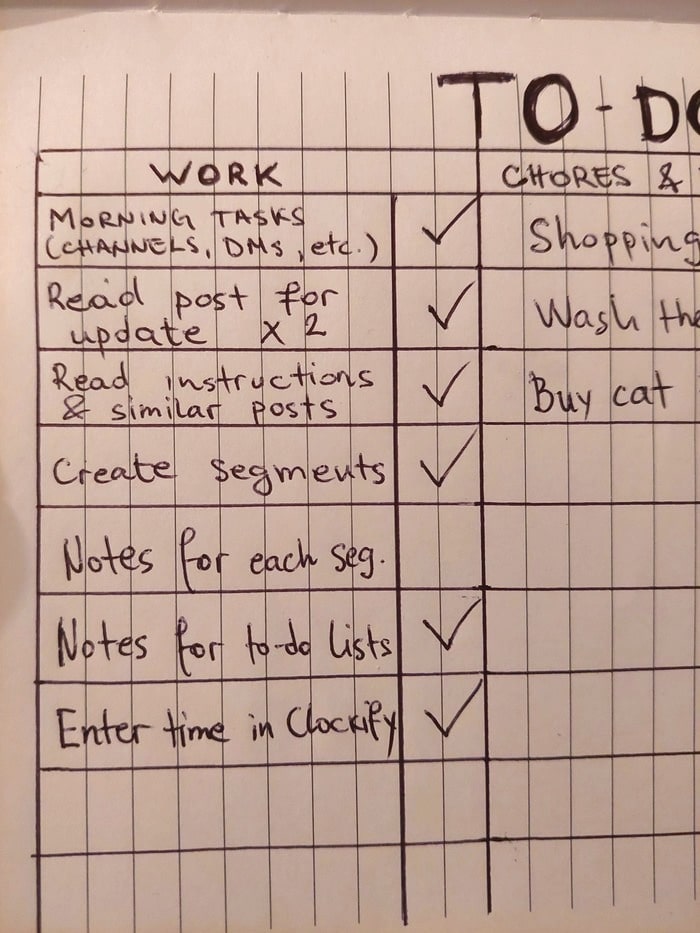 TO-DO
WORK
CHORES &
MORNING TASKS
(CHANNELS, DMs, etc.)
Shopping
Read post for
update x 2
Wash the
Read instructions
& similar posts
Buy cat
Create segments
Notes for each seg.
Notes for to-do lists
Enter time in Clockify